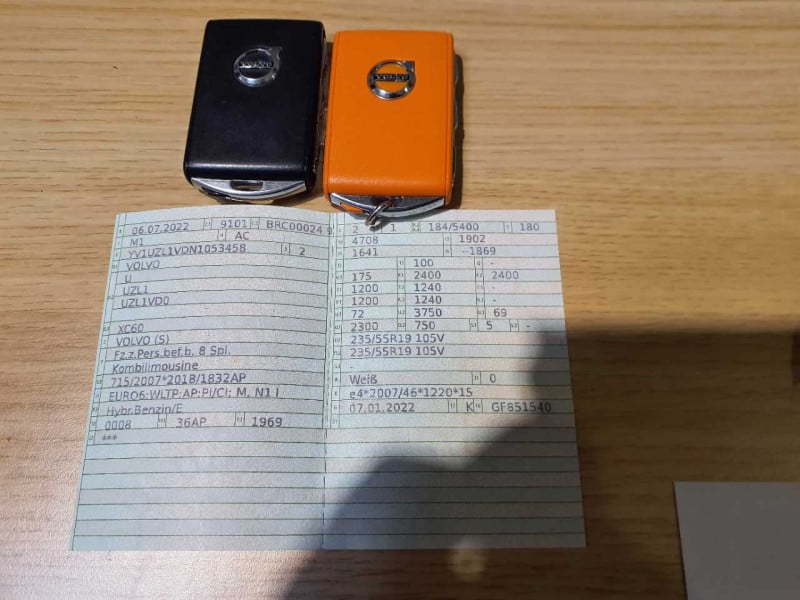 VOLVO
VOLVO
06.07.2022 9101 BRC00024 9
M1 AC
YV1UZL1VDN1053458 2
VOLVO
U
UZL1
UZL1VD0
XC60
VOLVO (S)
Fz.z.Pers.bef.b. 8 Spl.
Kombilimousine
715/2007*2018/1832AP
EURO6;WLTP;AP;PI/CI; M, N1 I
Hybr.Benzin/E
0008 36AP 1969
***
2 1 184/5400 180
4708 1902
1641 --1869
100 -
175 2400 2400
1200 1240 -
1200 1240 -
72 3750 69
2300 750 5 -
235/55R19 105V
235/55R19 105V
-
Weiß 0
e4*2007/46*1220*15
07.01.2022 K GF851540